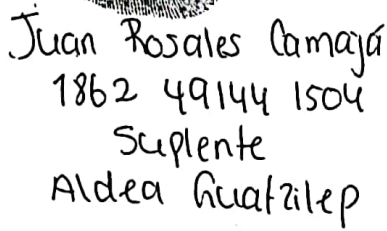 Juan Rosales Camajá
1862 49144 1504
Suplente
Aldea Guatzilep